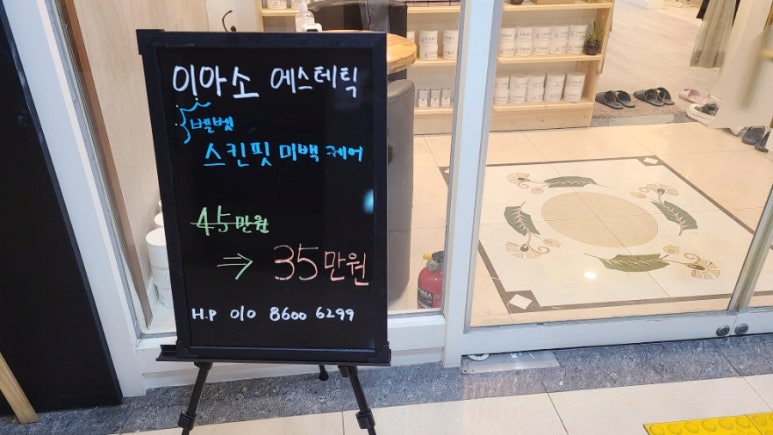 이아소 에스테틱
벨벳
스킨핏 미백 케어
45만원
→ 35만원
H.P 010 8600 6299